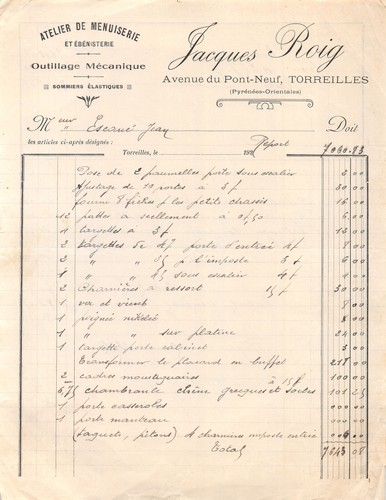 ATELIER DE MENUISERIE
ET ÉBÉNISTERIE
Outillage Mécanique
SOMMIERS ÉLASTIQUES
Jacques Roig
Avenue du Pont-Neuf, TORREILLES
(Pyrénées-Orientales)
Meur Escané Jean Doit
les articles ci-après désignés :
Torreilles, le 193 Report 7060.83
Pose de 2 paumelles porte sous escalier 3 00
Ajustage de 10 portes à 3f 30 00
fourni 8 fiches p les petits chassis 16 00
12 pattes a scellement à 0,50 6 00
4 targettes à 3f 12 00
2 targettes de 47 porte d'entrée 4f 8 00
2 " " 35 p l'imposte 3f 6 00
1 " " 45 sous escalier 4f 4 00
2 Charnières a ressort 15f 30 00
1 va et vient 8 00
1 poignée nikelée 8 00
1 " " sur platine 24 00
1 targette porte cabinet 3 00
Transformer le placard en buffet 218 00
2 cadres moustiquaires 100 00
6,75 chambrante chêne grecques et socles à 15f 101 25
1 porte casseroles 00
1 porte manteau 00
(taquets, pitons) 4 charnières imposte entrée 00
Total 7643 08